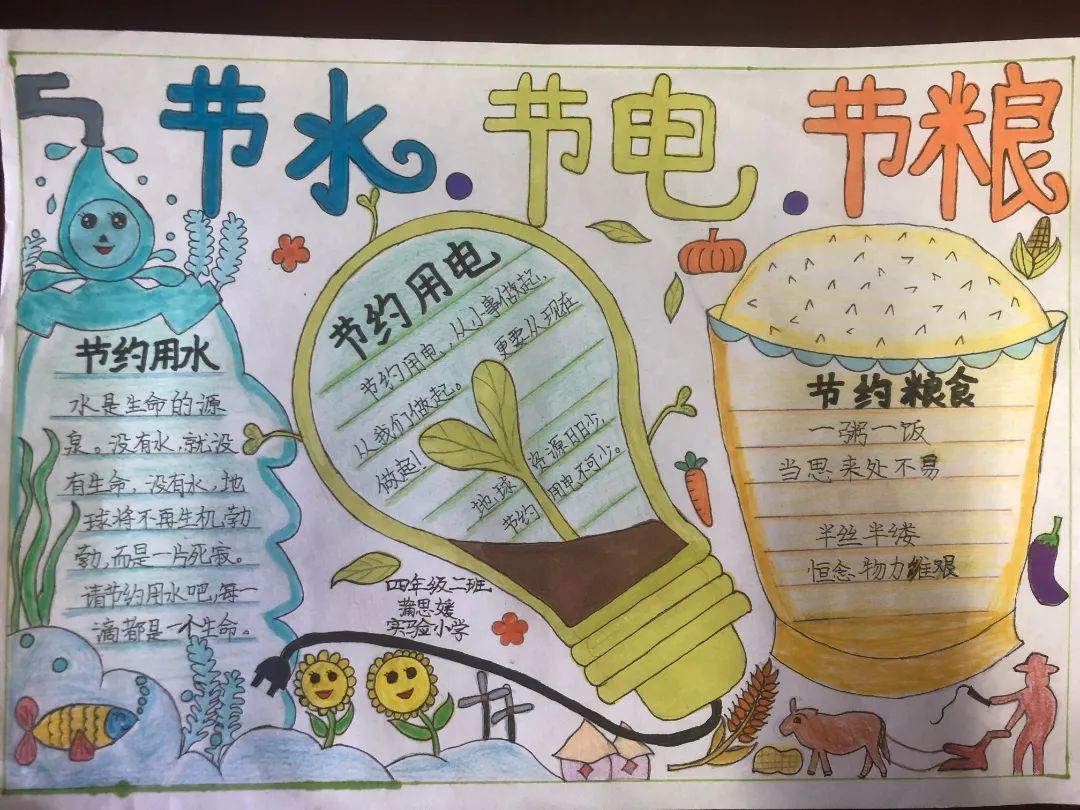 节水·节电·节粮
节约用水
水是生命的源
泉。没有水,就没
有生命,没有水,地
球将不再生机勃
勃,而是一片死寂。
请节约用水吧,每一
滴都是一个生命。
节约用电
节约用电,从小事做起,
从我们做起。更要从现在
做起!
地球资源日日少,
节约用电不可少。
四年级二班
蒲思媛
实验小学
节约粮食
一粥一饭
当思来处不易
半丝半缕
恒念物力维艰